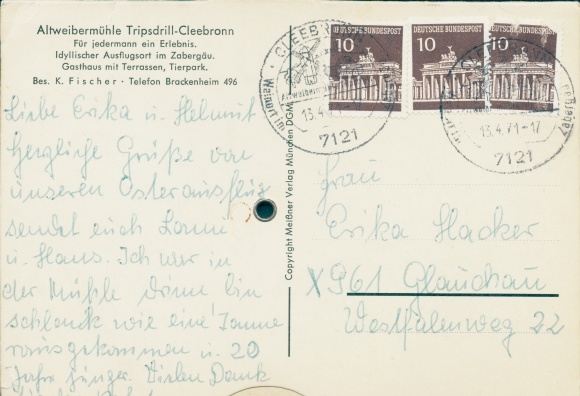 Altweibermühle Tripsdrill-Cleebronn
Für jedermann ein Erlebnis.
Idyllischer Ausflugsort im Zabergäu.
Gasthaus mit Terrassen, Tierpark.
Bes. K. Fischer · Telefon Brackenheim 496
Liebe Erika u. Helmut
herzliche Grüße von
unseren Osterausflug
sendet euch
u. Hans. Ich war in
der Mühle drinne bin
schlank wie eine Tanne
rausgekommen u. 20
Jahr jünger. Vielen Dank
Copyright Meißner Verlag München DGM
10 DEUTSCHE BUNDESPOST
10 DEUTSCHE BUNDESPOST
10 DEUTSCHE BUNDESPOST
CLEEBRONN
13.4.71
7121
13.4.71-17
7121
Frau
Erika Hacker
X961 Glauchau
Westfalenweg 22